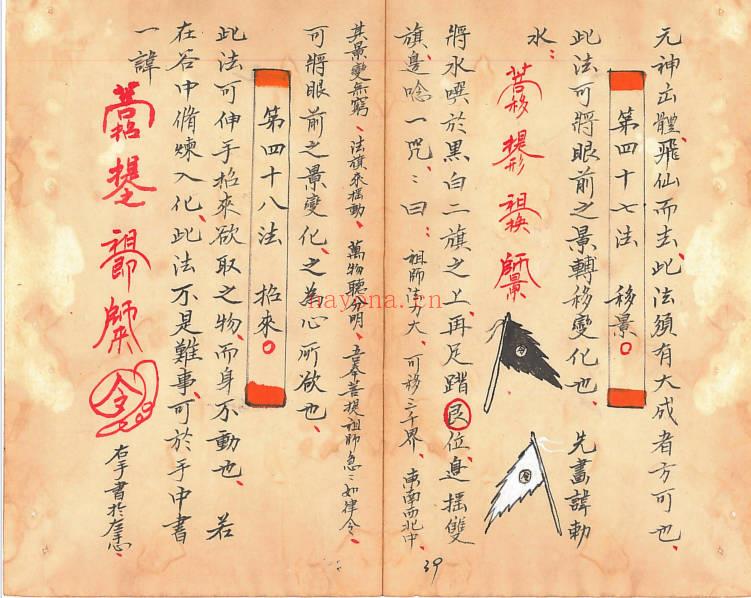 元神出體飛仙而去、此法須有大成者方可也、
第四十七法 移景○
此法可將眼前之景轉移變化也、先畫諱勅
水：
菩移 提形 祖換 師景
將水噀於黑白二旗之上、再足踏艮位、邊搖雙
旗、邊唸一咒、：曰：祖師法力大、可移三千界、東南西北中、
其景變無窮、法旗來搖動、萬物聽分明、吾奉菩提祖師急：如律令、
可將眼前之景變化、之為心所欲也、
第四十八法 招來○
此法可伸手招來欲取之物、而身不動也、若
在谷中脩煉入化、此法不是難事、可於手中書
一諱
菩招 提之 祖即 師來 令
右手書於左手心、
39
nayona.cn